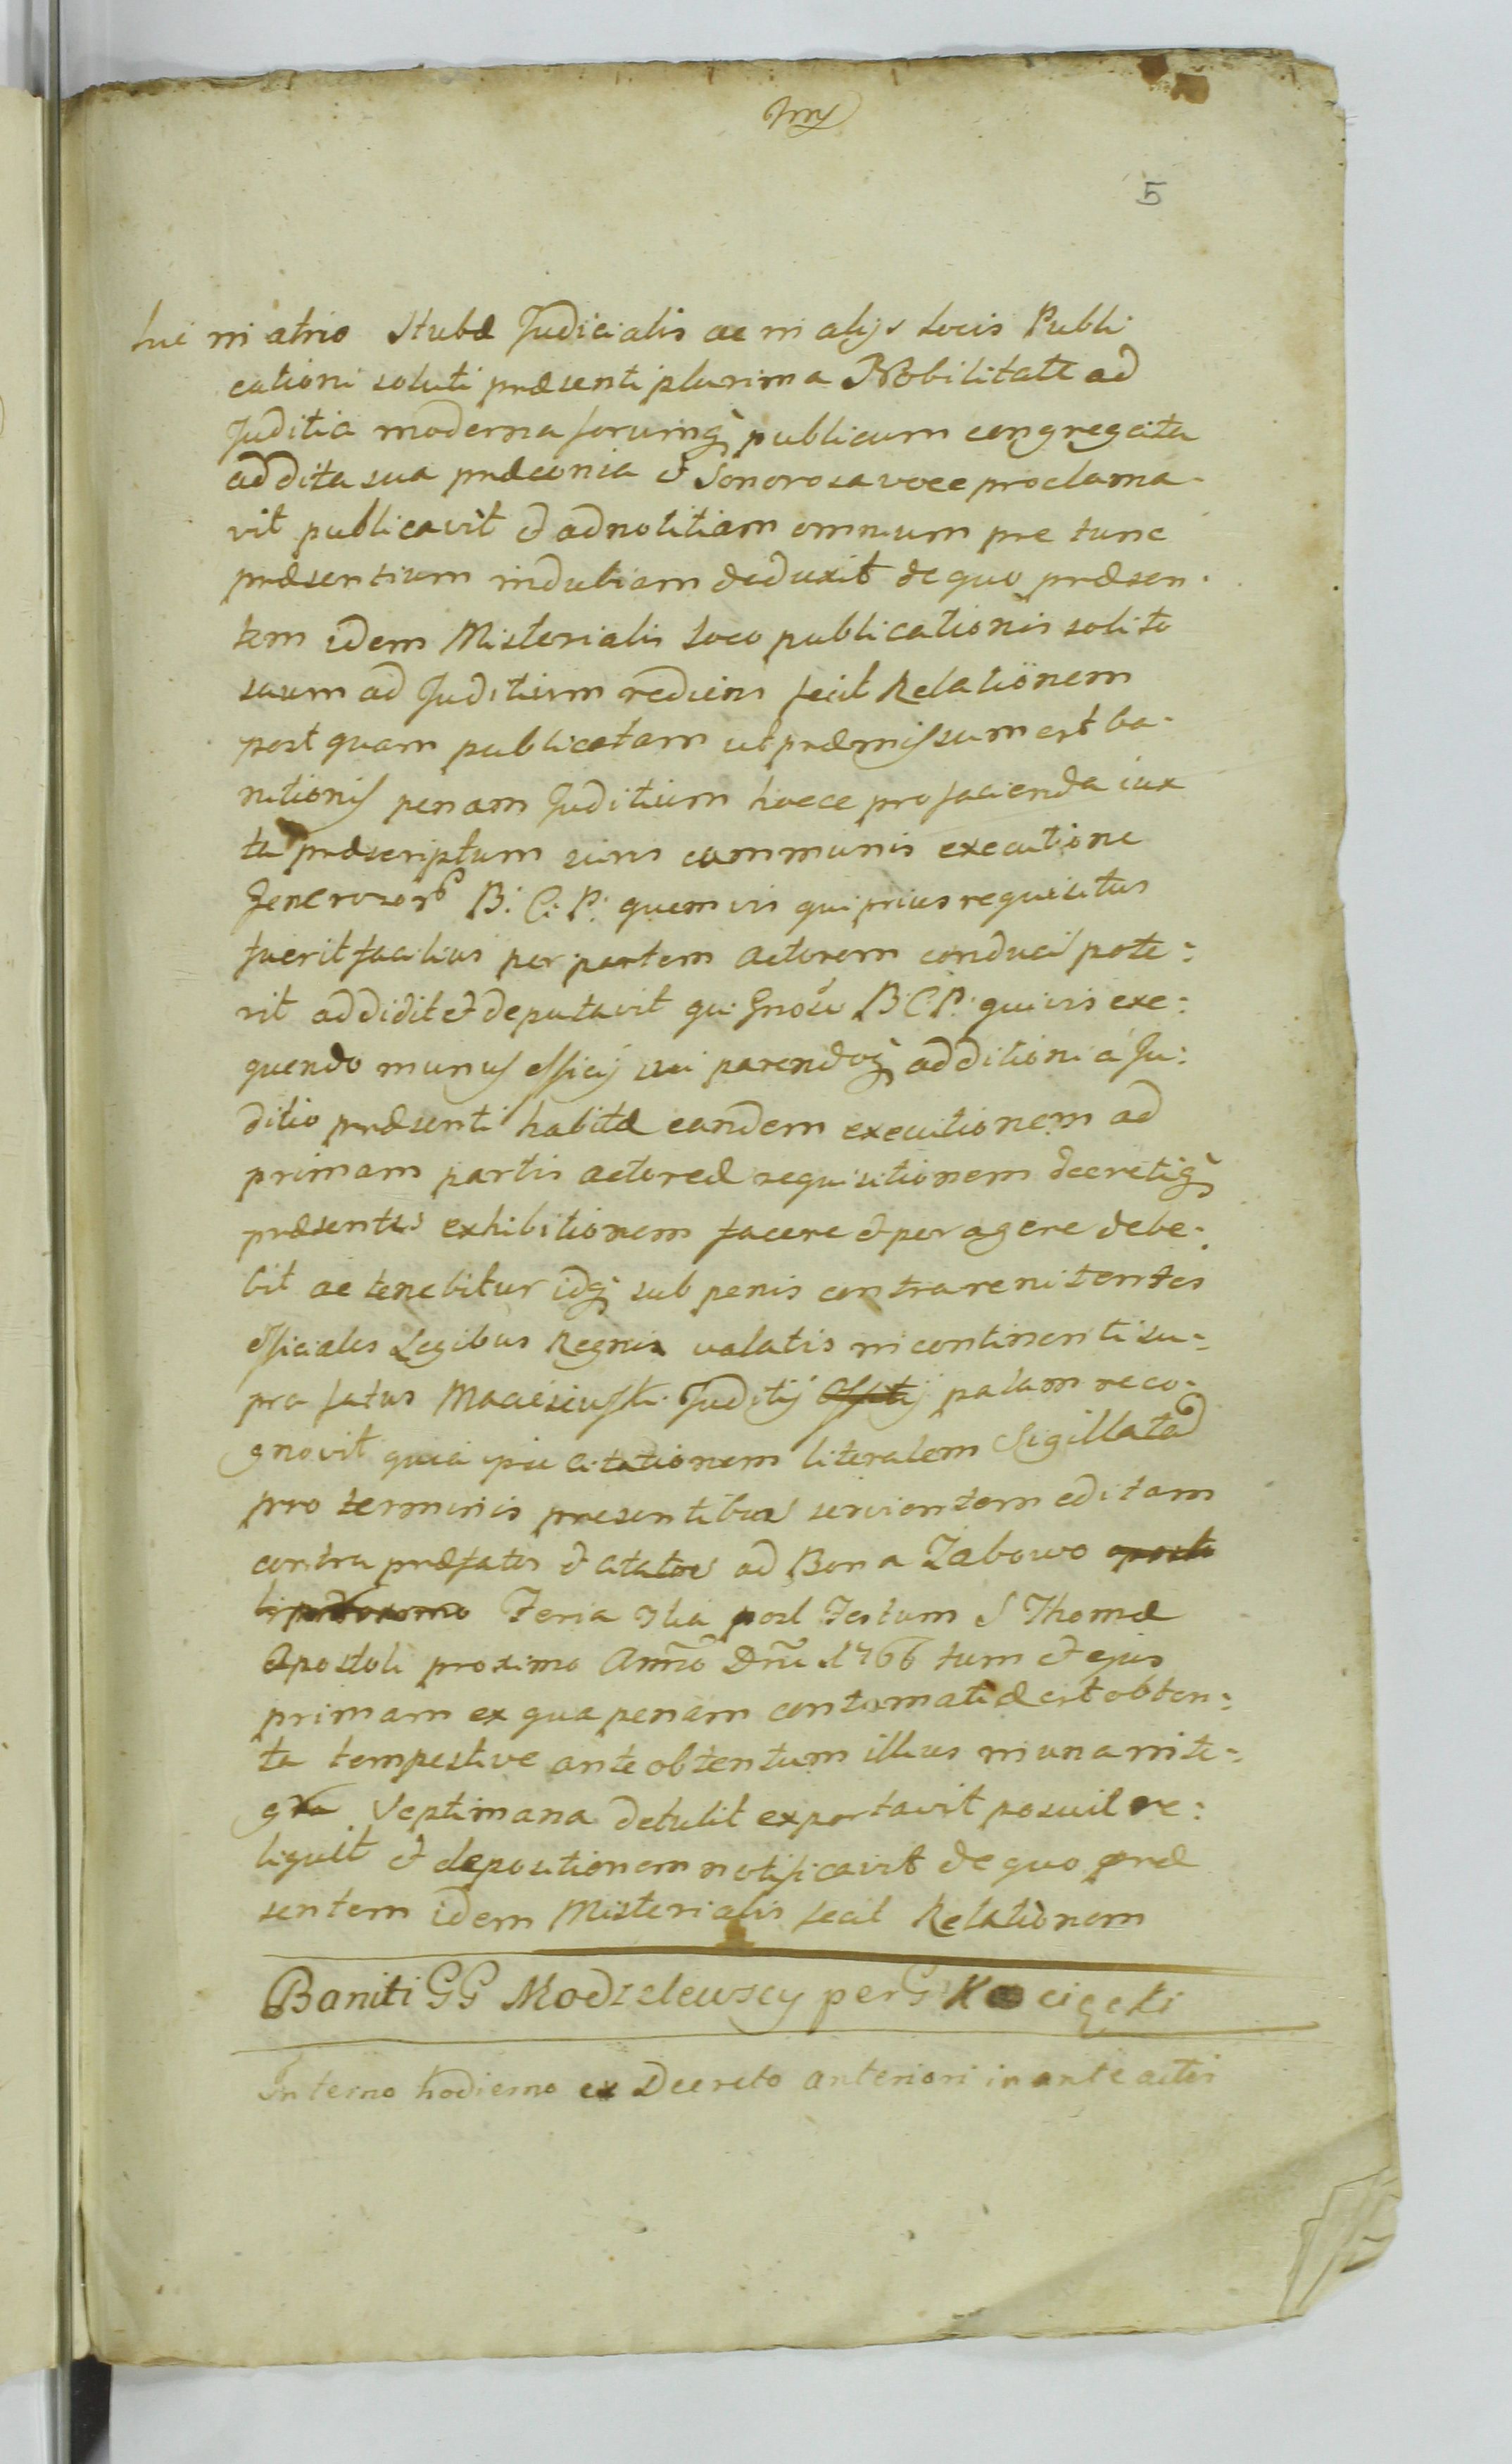 5
hic in atrio Stubæ Judicialis ac in alijs Locis Publi
cationi soliti præsenti plurima Nobilitate ad
Juditia moderna forumq̃ publicum congregata
addita sua præconia et Sonorosa voce proclama-
vit publicavit et ad notitiam omnium pre tunc
præsentium indubiam deduxit de quo præsen-
tem idem Misterialis Loco publicationis solito
suum ad Juditium rediens fecit Relationem
post quam publicatam ut præmissum est ba-
nitionis penam Juditium hocce pro facienda iux
ta præscriptum iuris communis executione
Generozor B: C: P: quemvis qui prius requisitus
fuerit facilius per partem actorem conduci pote:
rit addidit et deputavit qui Gnosū B: C: P: quivis exe:
quendo munus officij sui parendoq̃ additioni á Ju:
ditio præsenti habitæ eandem executionem ad
primam partis actoreæ requisitionem decretiq̃
præsentis exhibitionem facere et peragere debe-
bit ac tenebitur idq̃ sub penis contra renitentes
officiales Legibus Regni valatis in continenti su-
pra fatus Juditij Offitij palam reco-
gnovit quia ipse citationem literalem Sigillatã
pro terminis presentibus servientem editam
contra præfatos et citatos ad Bona Zabowo
Feria 3tia post Festum S Thomæ
Apostoli proximo Anno Dnī 1766 tum et ejus
primam ex qua penam contumatiæ est obten:
ta tempestive ante obtentum illius in una inte-
gra Septimana detulit exportavit posuit re:
liquit et depositionem notificavit de quo præ
sentem idem Misterialis fecit Relationem
Baniti GG Modzelewscy per G Kocięcki
In terno hodierno ex Decreto anteriori in ante actis